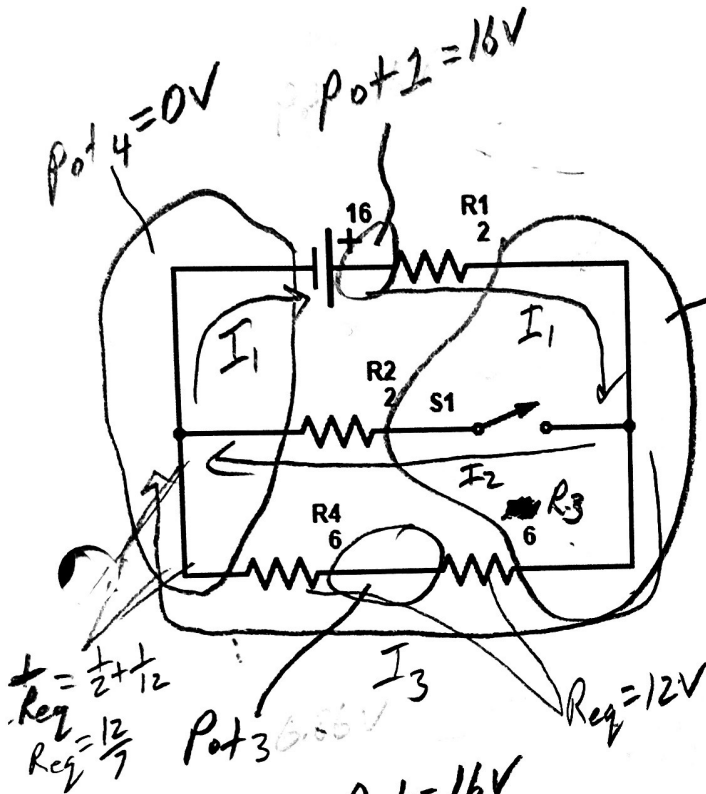 Pot 1 = 16V
Pot 4 = 0V
+ 16
R1
2
I1
I1
R2
2
S1
I2
R3
6
R4
6
I3
1/Req = 1/2 + 1/12
Req = 12/7
Pot 3 6.86V
Req = 12V
= 16V